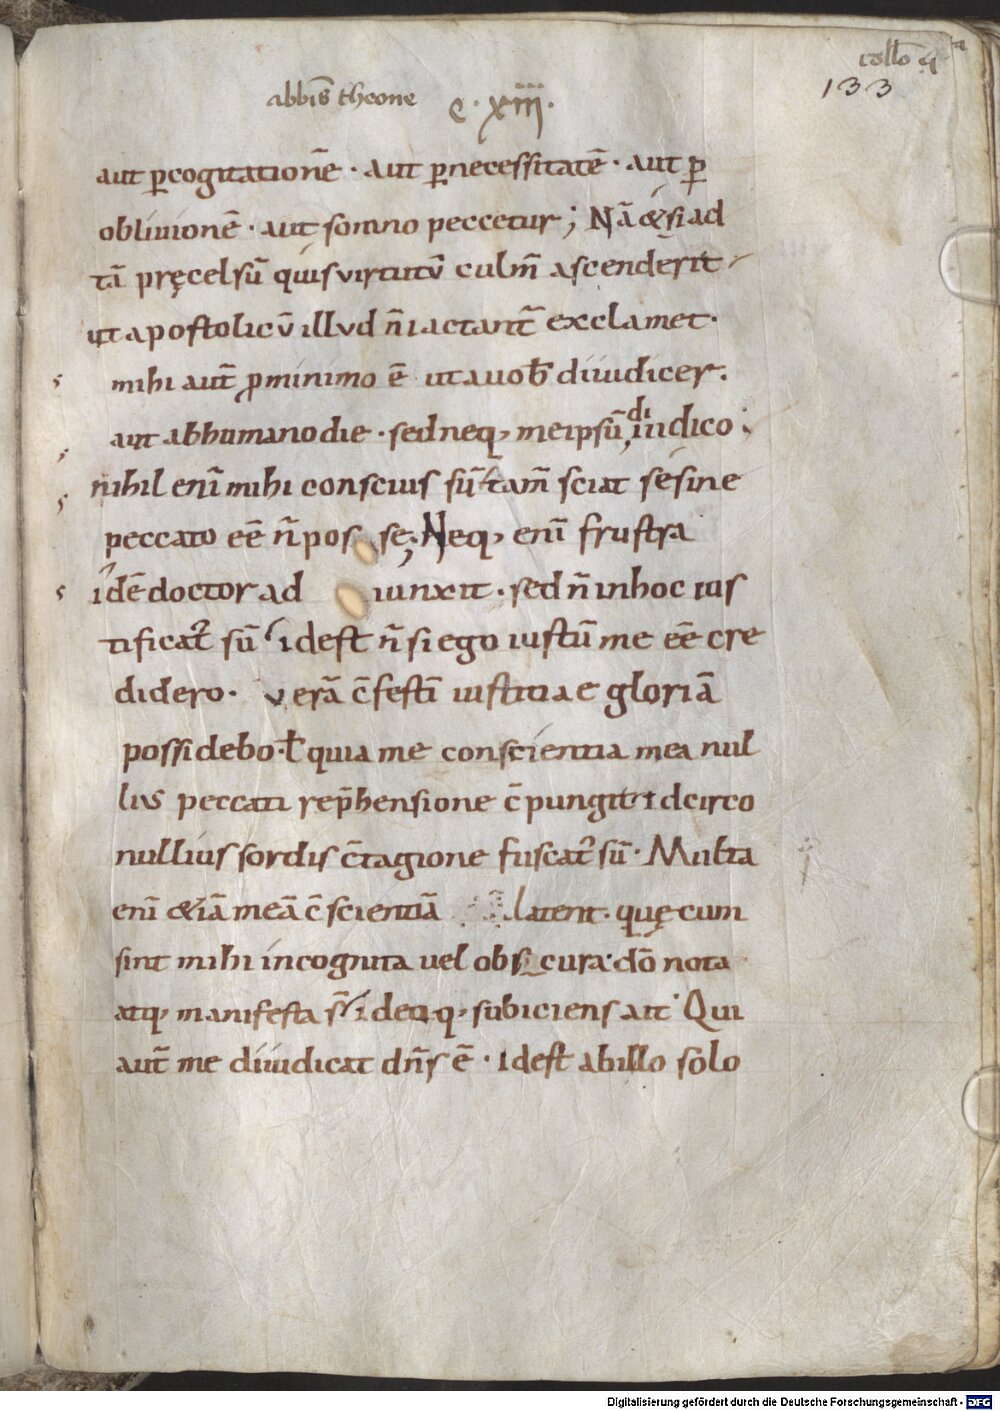 collo
133
abbis theone
c. xiiij.
aut ꝑcogitationē · aut ꝑnecessitatē · aut ꝑ
obliuionē · aut somno peccetur; Nā &si ad
tā pręcelsū quis virtutū culm̄ ascenderit
ut apostolicū illvd n̄ iactant̄ exclamet·
mihi aut̄ ꝓminimo ē ut auob̄ diiudicer.
aut abhumano die · sed neq, me ipsū diiudico
nihil enī mihi conscius sū tam̄ sciat se sine
peccato eē n̄ pos se; Neq, enī frustra
idē doctor ad iunxit · sed n̄ inhoc ius
tificat᷑ sū idest n̄ si ego iustū me eē cre
didero · verā c̄festī iustitiae gloriā
possidebo · ł quia me conscientia mea nul
lius peccati rep̄hensione c̄pungit idcirco
nullius sordis c̄tagione fuscat᷑ sū · Multa
enī &iā meā c̄scientiā latent · quę cum
sint mihi incognita uel obscura dō nota
atq, manifesta s̄t ideoq, subiciens ait Qui
aut̄ me diiudicat dn̄s ē · idest abillo solo
Digitalisierung gefördert durch die Deutsche Forschungsgemeinschaft - DFG